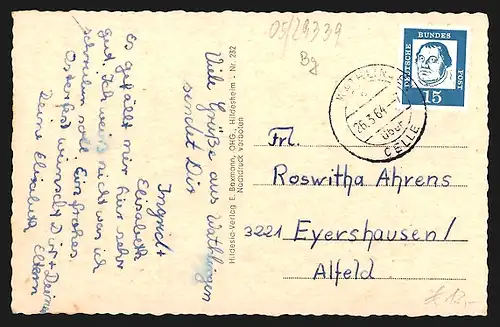 Es gefällt mir hier sehr
gut. Ich weiß nicht was ich
schreiben soll. Ein frohes
Osterfest wünscht Dir + Deinen Eltern
Deine Elisabeth
Viele Grüße aus Wathlingen
sendet Dir
Ingrid +
Elisabeth
Hildesia-Verlag E. Baxmann, OHG., Hildesheim - Nr. 232
Nachdruck verboten
05/29339
Bg
DEUTSCHE BUNDES POST
15
WATHLINGEN
26.3.64
über
CELLE
Frl.
Roswitha Ahrens
3221 Eyershausen/
Alfeld